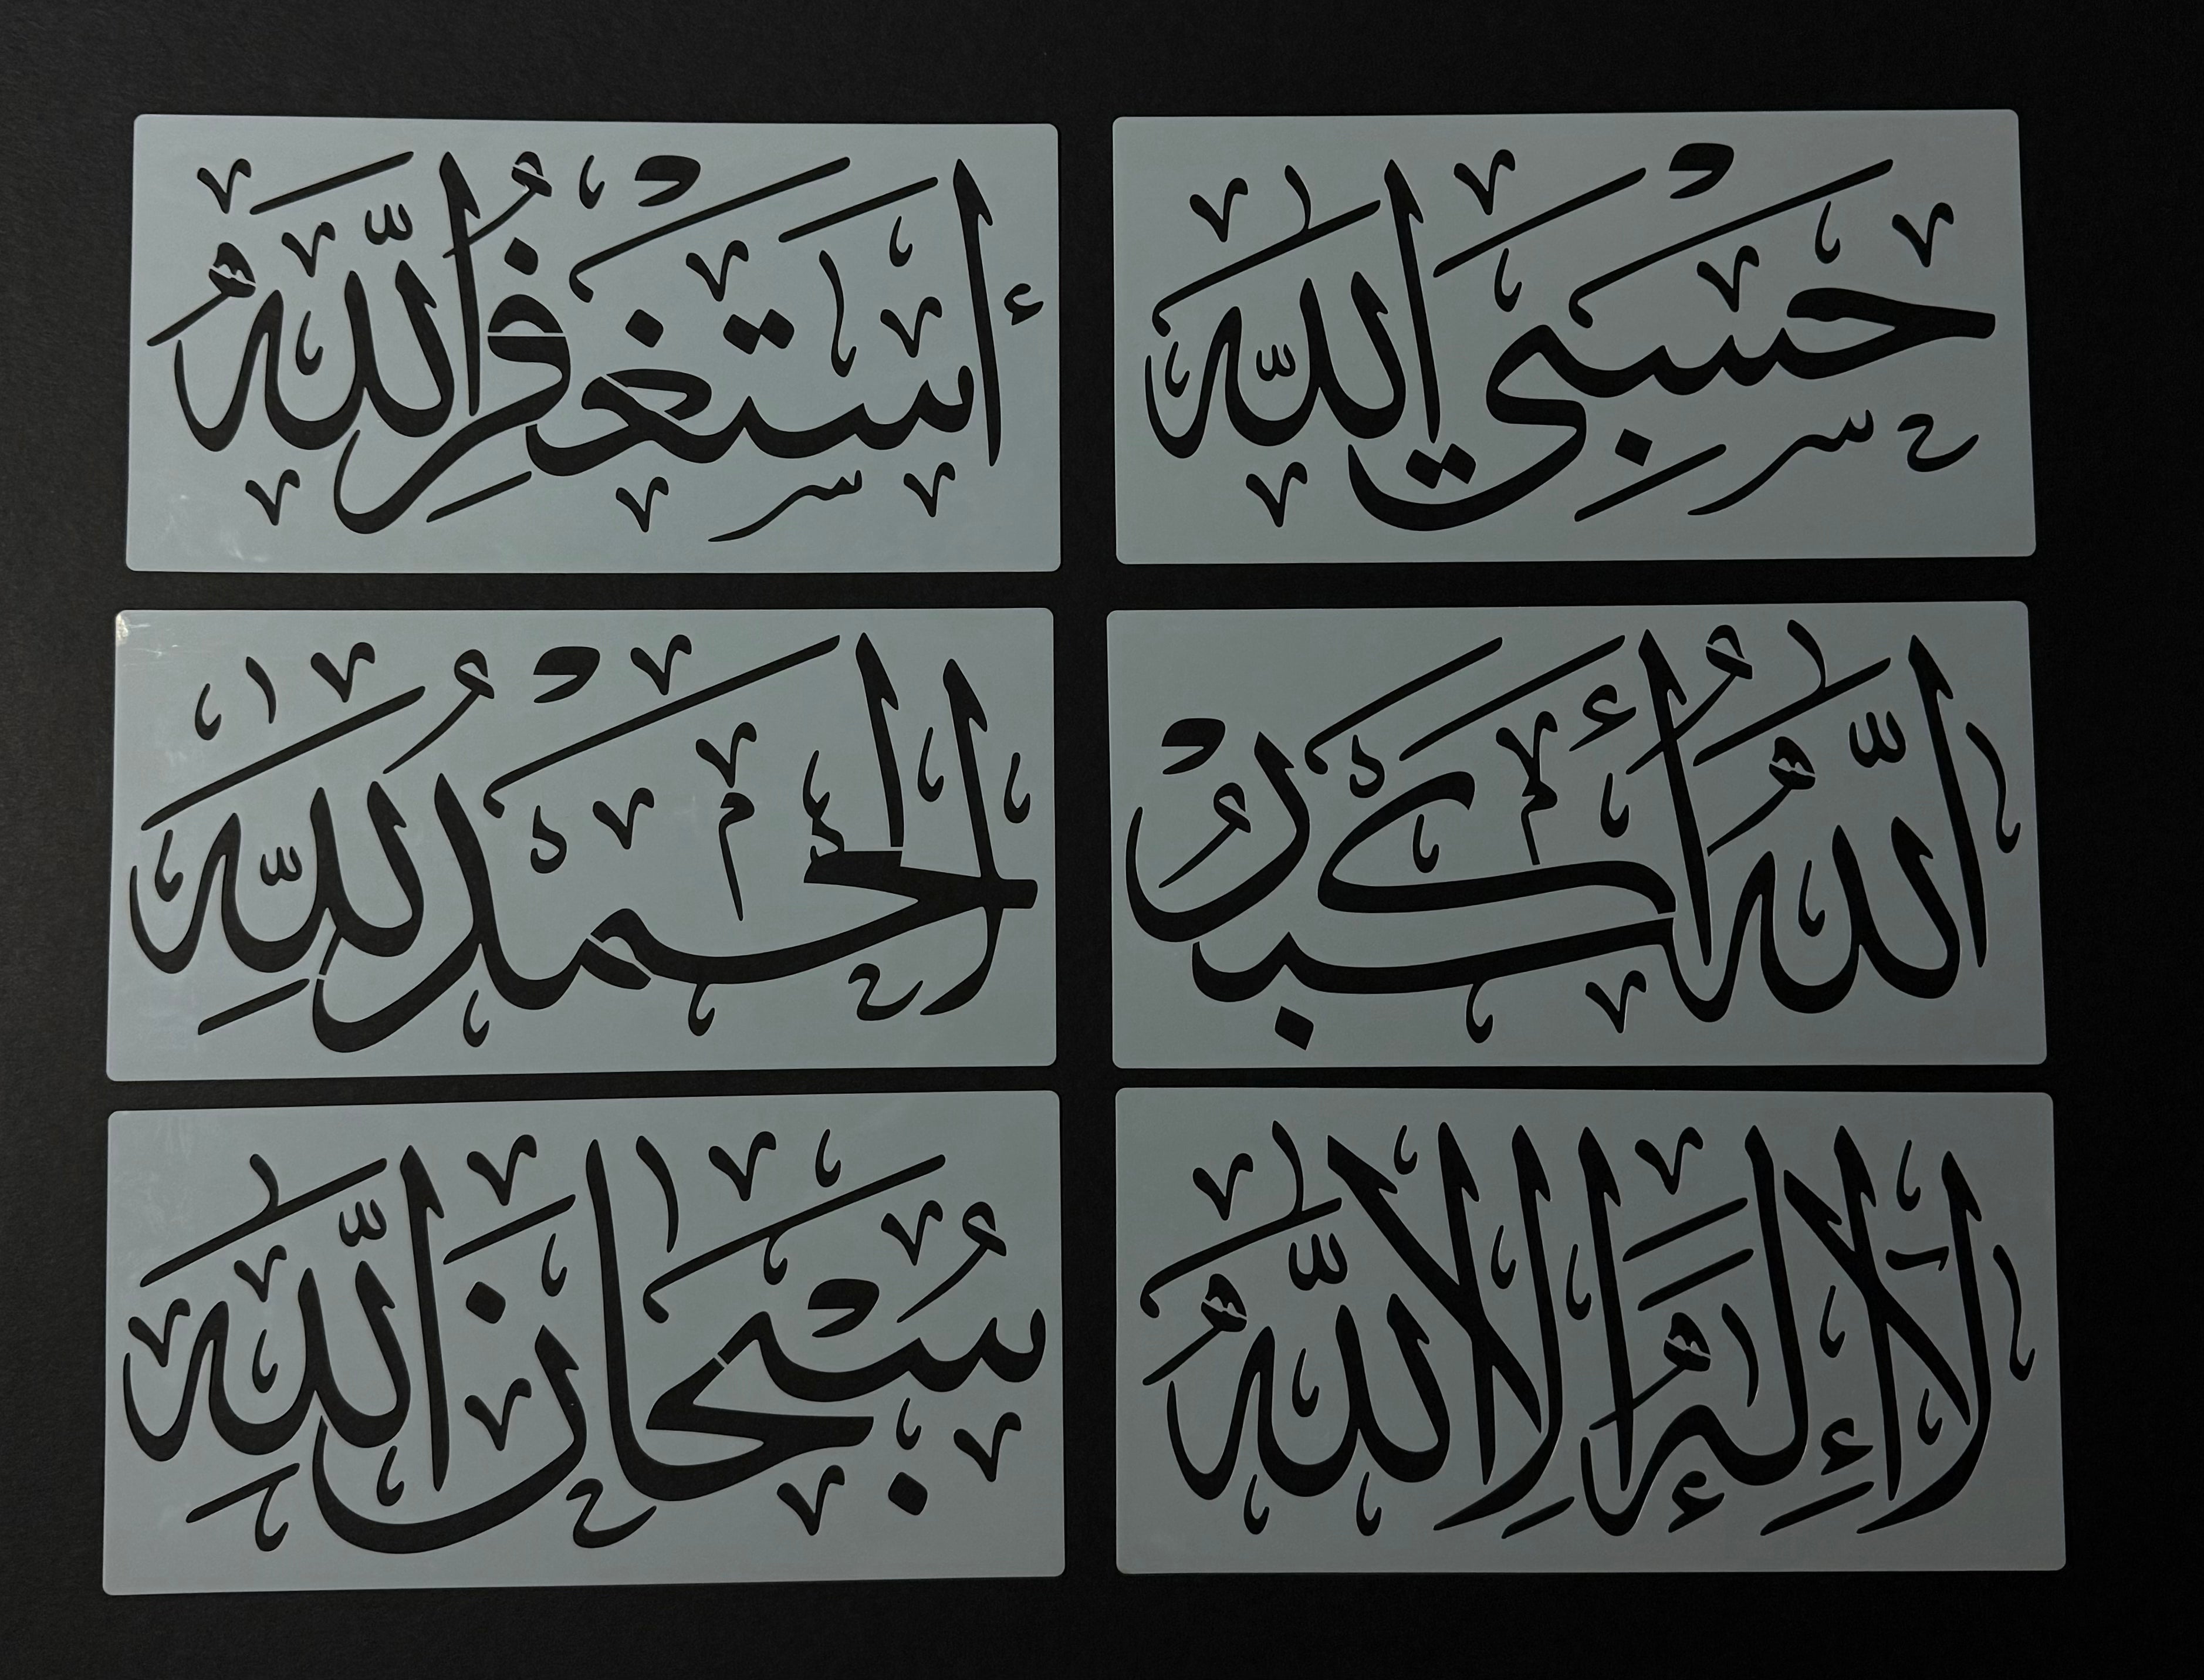 حَسْبِيَ اللّٰهُ
أَسْتَغْفِرُ اللّٰهَ
اللّٰهُ أَكْبَرُ
الْحَمْدُ لِلّٰهِ
لَا إِلٰهَ إِلَّا اللّٰهُ
سُبْحَانَ اللّٰهِ